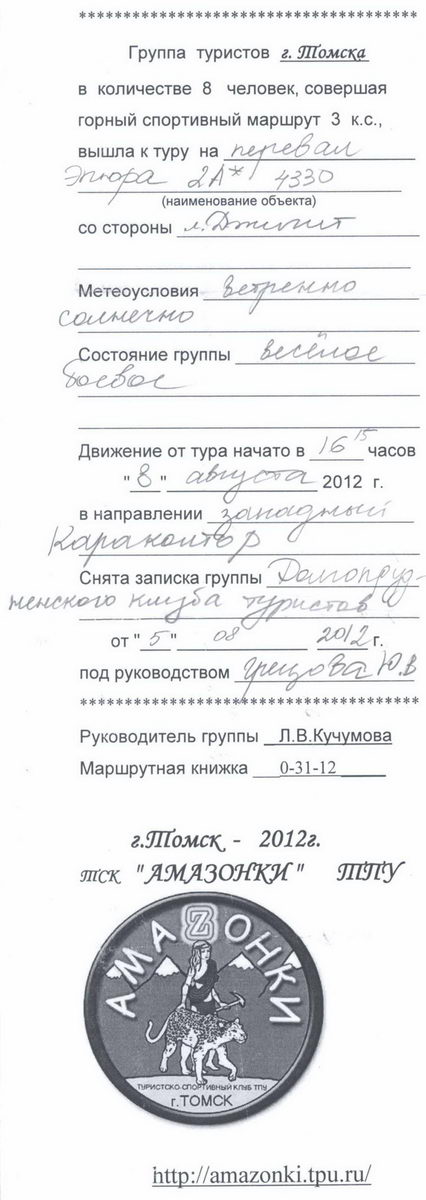 ***********************************
Группа туристов г. Томска
в количестве 8 человек, совершая
горный спортивный маршрут 3 к.с.,
вышла к туру на перевал
Эпюра 2А* 4330
(наименование объекта)
со стороны л. Джигит
Метеоусловия ветренно
солнечно
Состояние группы весёлое
боевое
Движение от тура начато в 16 15 часов
"8" августа 2012 г.
в направлении западный
Каракольтор
Снята записка группы Долгопруд-
ненского клуба туристов
от "5" 08 2012 г.
под руководством Грецова Ю.В
***********************************
Руководитель группы Л.В.Кучумова
Маршрутная книжка 0-31-12
г.Томск - 2012г.
ТСК "АМАЗОНКИ" ТПУ
АМАZОНКИ
ТУРИСТСКО-СПОРТИВНЫЙ КЛУБ ТПУ
г.ТОМСК
http://amazonki.tpu.ru/